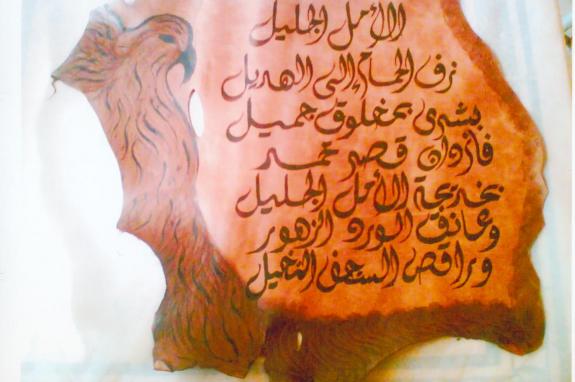 الأمل الجليل
نزف الحمام إلى الهديل
بشرى بمخلوق جميل
فازدان قصر محمد
بخديجة الأمل الجليل
وعانق الورد الزهور
وراقص السعف النخيل